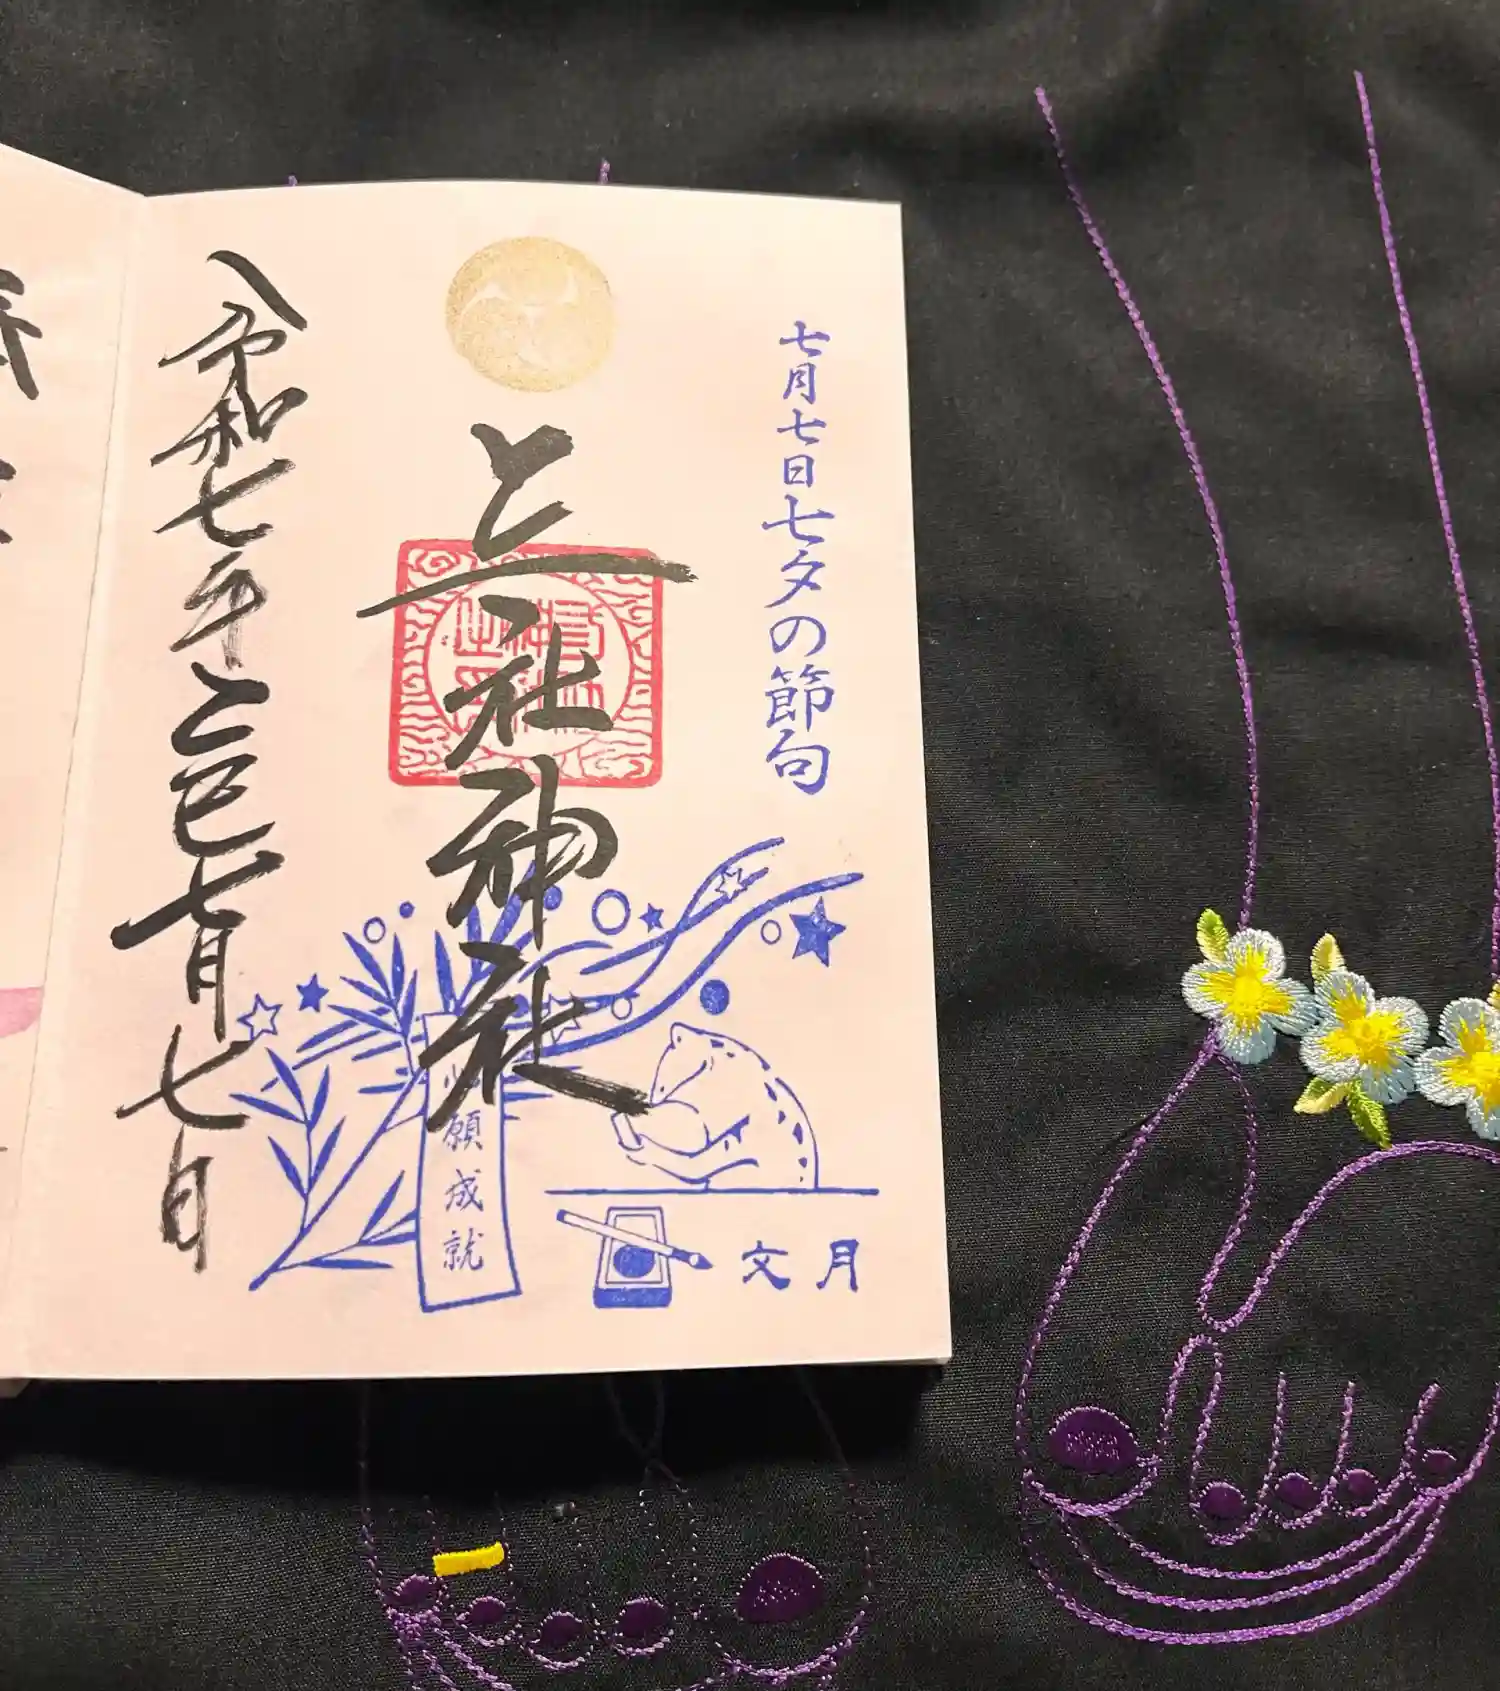 七月七日七夕の節句
三社神社
令和七年乙巳七月七日
願成就
文月